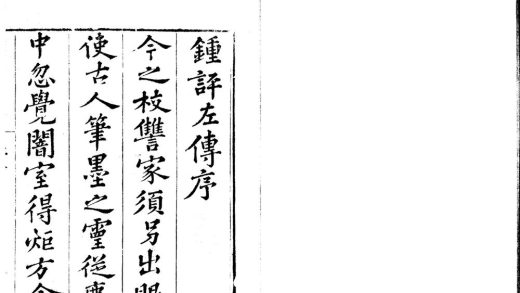 鍾評左傳序
今之校讐家須另出眼
使古人筆墨之靈從
中忽覺闇室得炬方